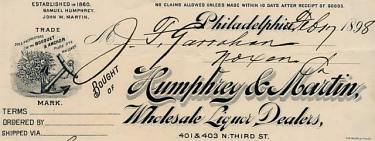 ESTABLISHED IN 1860.
SAMUEL HUMPHREY,
JOHN W. MARTIN.
NO CLAIMS ALLOWED UNLESS MADE WITHIN 10 DAYS AFTER RECEIPT OF GOODS.
Philadelphia, 1898
J. F. Garrahan
Noxen Pa
TRADE
BOUQUET
& ANCHOR
MARK.
BOUGHT OF
Humphrey & Martin,
Wholesale Liquor Dealers,
401 & 403 N. THIRD ST.
TERMS
ORDERED BY
SHIPPED VIA